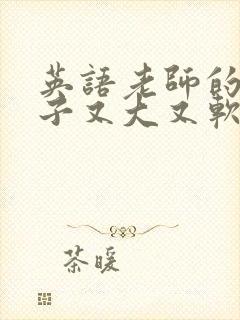 英語老師的
子又大又軟
茶暖